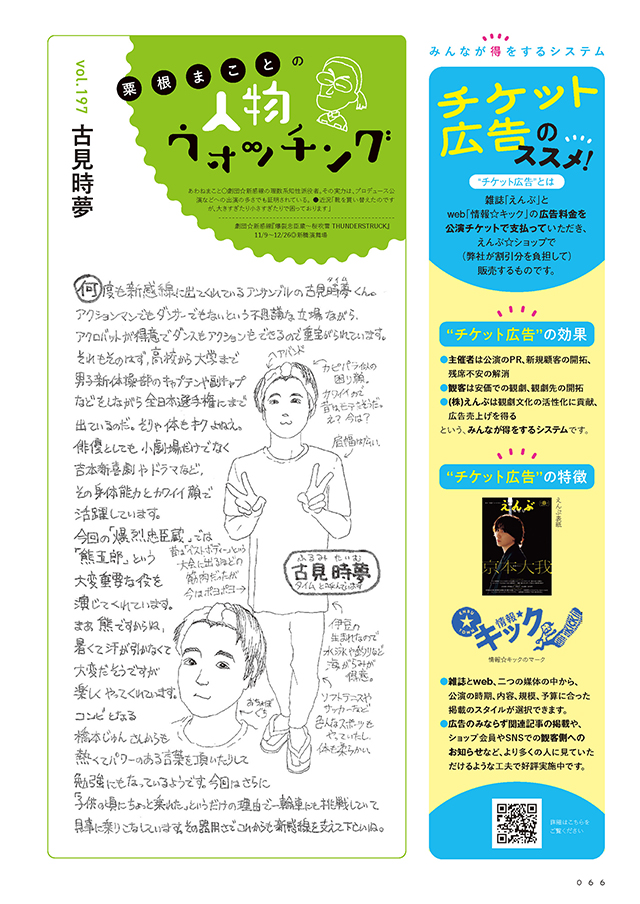 vol.197 古見時夢
粟根まことの
人物
ウォッチング
あわねまこと○劇団☆新感線の理数系知性派役者。その実力は、プロデュース公
演などへの出演の多さでも証明されている。●近況「靴を買い替えたのです
が、大きすぎたり小さすぎたりで困っております」
劇団☆新感線『爆烈忠臣蔵～桜吹雪THUNDERSTRUCK』
11/9～12/26◎新橋演舞場
何度も新感線に出てくれているアンサンブルの古見時夢くん。
タイム
アクションマンでもダンサーでもないという不思議な立場ながら、
アクロバットが得意でダンスもアクションもできるので重宝がられています。
それもそのはず、高校から大学まで
男子新体操部のキャプテンや副キャプ
などをしながら全日本選手権にまで
出ているのだ。そりゃ体もキクよねぇ。
俳優としても小劇場だけでなく
吉本新喜劇やドラマなど、
その身体能力とカワイイ顔で
活躍しています。
今回の「爆烈忠臣蔵」では
「熊五郎」という
大変重要な役を
演じてくれています。
まあ熊ですからね、
暑くて汗が引かなくて
大変だそうですが
楽しくやってくれています。
コンビとなる
橋本じゅんさんからも
熱くてパワーのある言葉を頂いたりして
勉強にもなっているようです。今回はさらに
「子供の頃にちょっと乗れた」というだけの理由で一輪車にも挑戦していて
見事に乗りこなしています。その器用さでこれからも新感線を支えて下さいね。
ヘアバンド
カピバラ似の
困り顔。
カワイイので
昔はモテそうだ。
え？今は？
肩幅は広い。
昔は「ベストボディー」という
大会に出るほどの
筋肉だったが
今はポヨポヨ
ふるみ たいむ
古見時夢
タイムと呼んでいます
伊豆の
生まれなので
水泳や釣りなど
海がらみが
得意。
おちょぼ
ぐち
ソフトテニスや
サッカーなど
色んなスポーツも
やっていたし、
体も柔らかい。
みんなが得をするシステム
チケット
広告の
ススメ！
“チケット広告”とは
雑誌「えんぶ」と
web「情報☆キック」の広告料金を
公演チケットで支払っていただき、
えんぶ☆ショップで
（弊社が割引分を負担して）
販売するものです。
“チケット広告”の効果
●主催者は公演のPR、新規顧客の開拓、
残席不安の解消
●観客は安価での観劇、観劇先の開拓
●(株)えんぶは観劇文化の活性化に貢献、
広告売上げを得る
という、みんなが得をするシステムです。
“チケット広告”の特徴
えんぶ
京本大我
えんぶ表紙
ENBU
TOWN
情報★
キック
情報☆キックのマーク
●雑誌とweb、二つの媒体の中から、
公演の時期、内容、規模、予算に合った
掲載のスタイルが選択できます。
●広告のみならず関連記事の掲載や、
ショップ会員やSNSでの観客側への
お知らせなど、より多くの人に見ていた
だけるような工夫で好評実施中です。
詳細はこちらを
ご覧ください
066